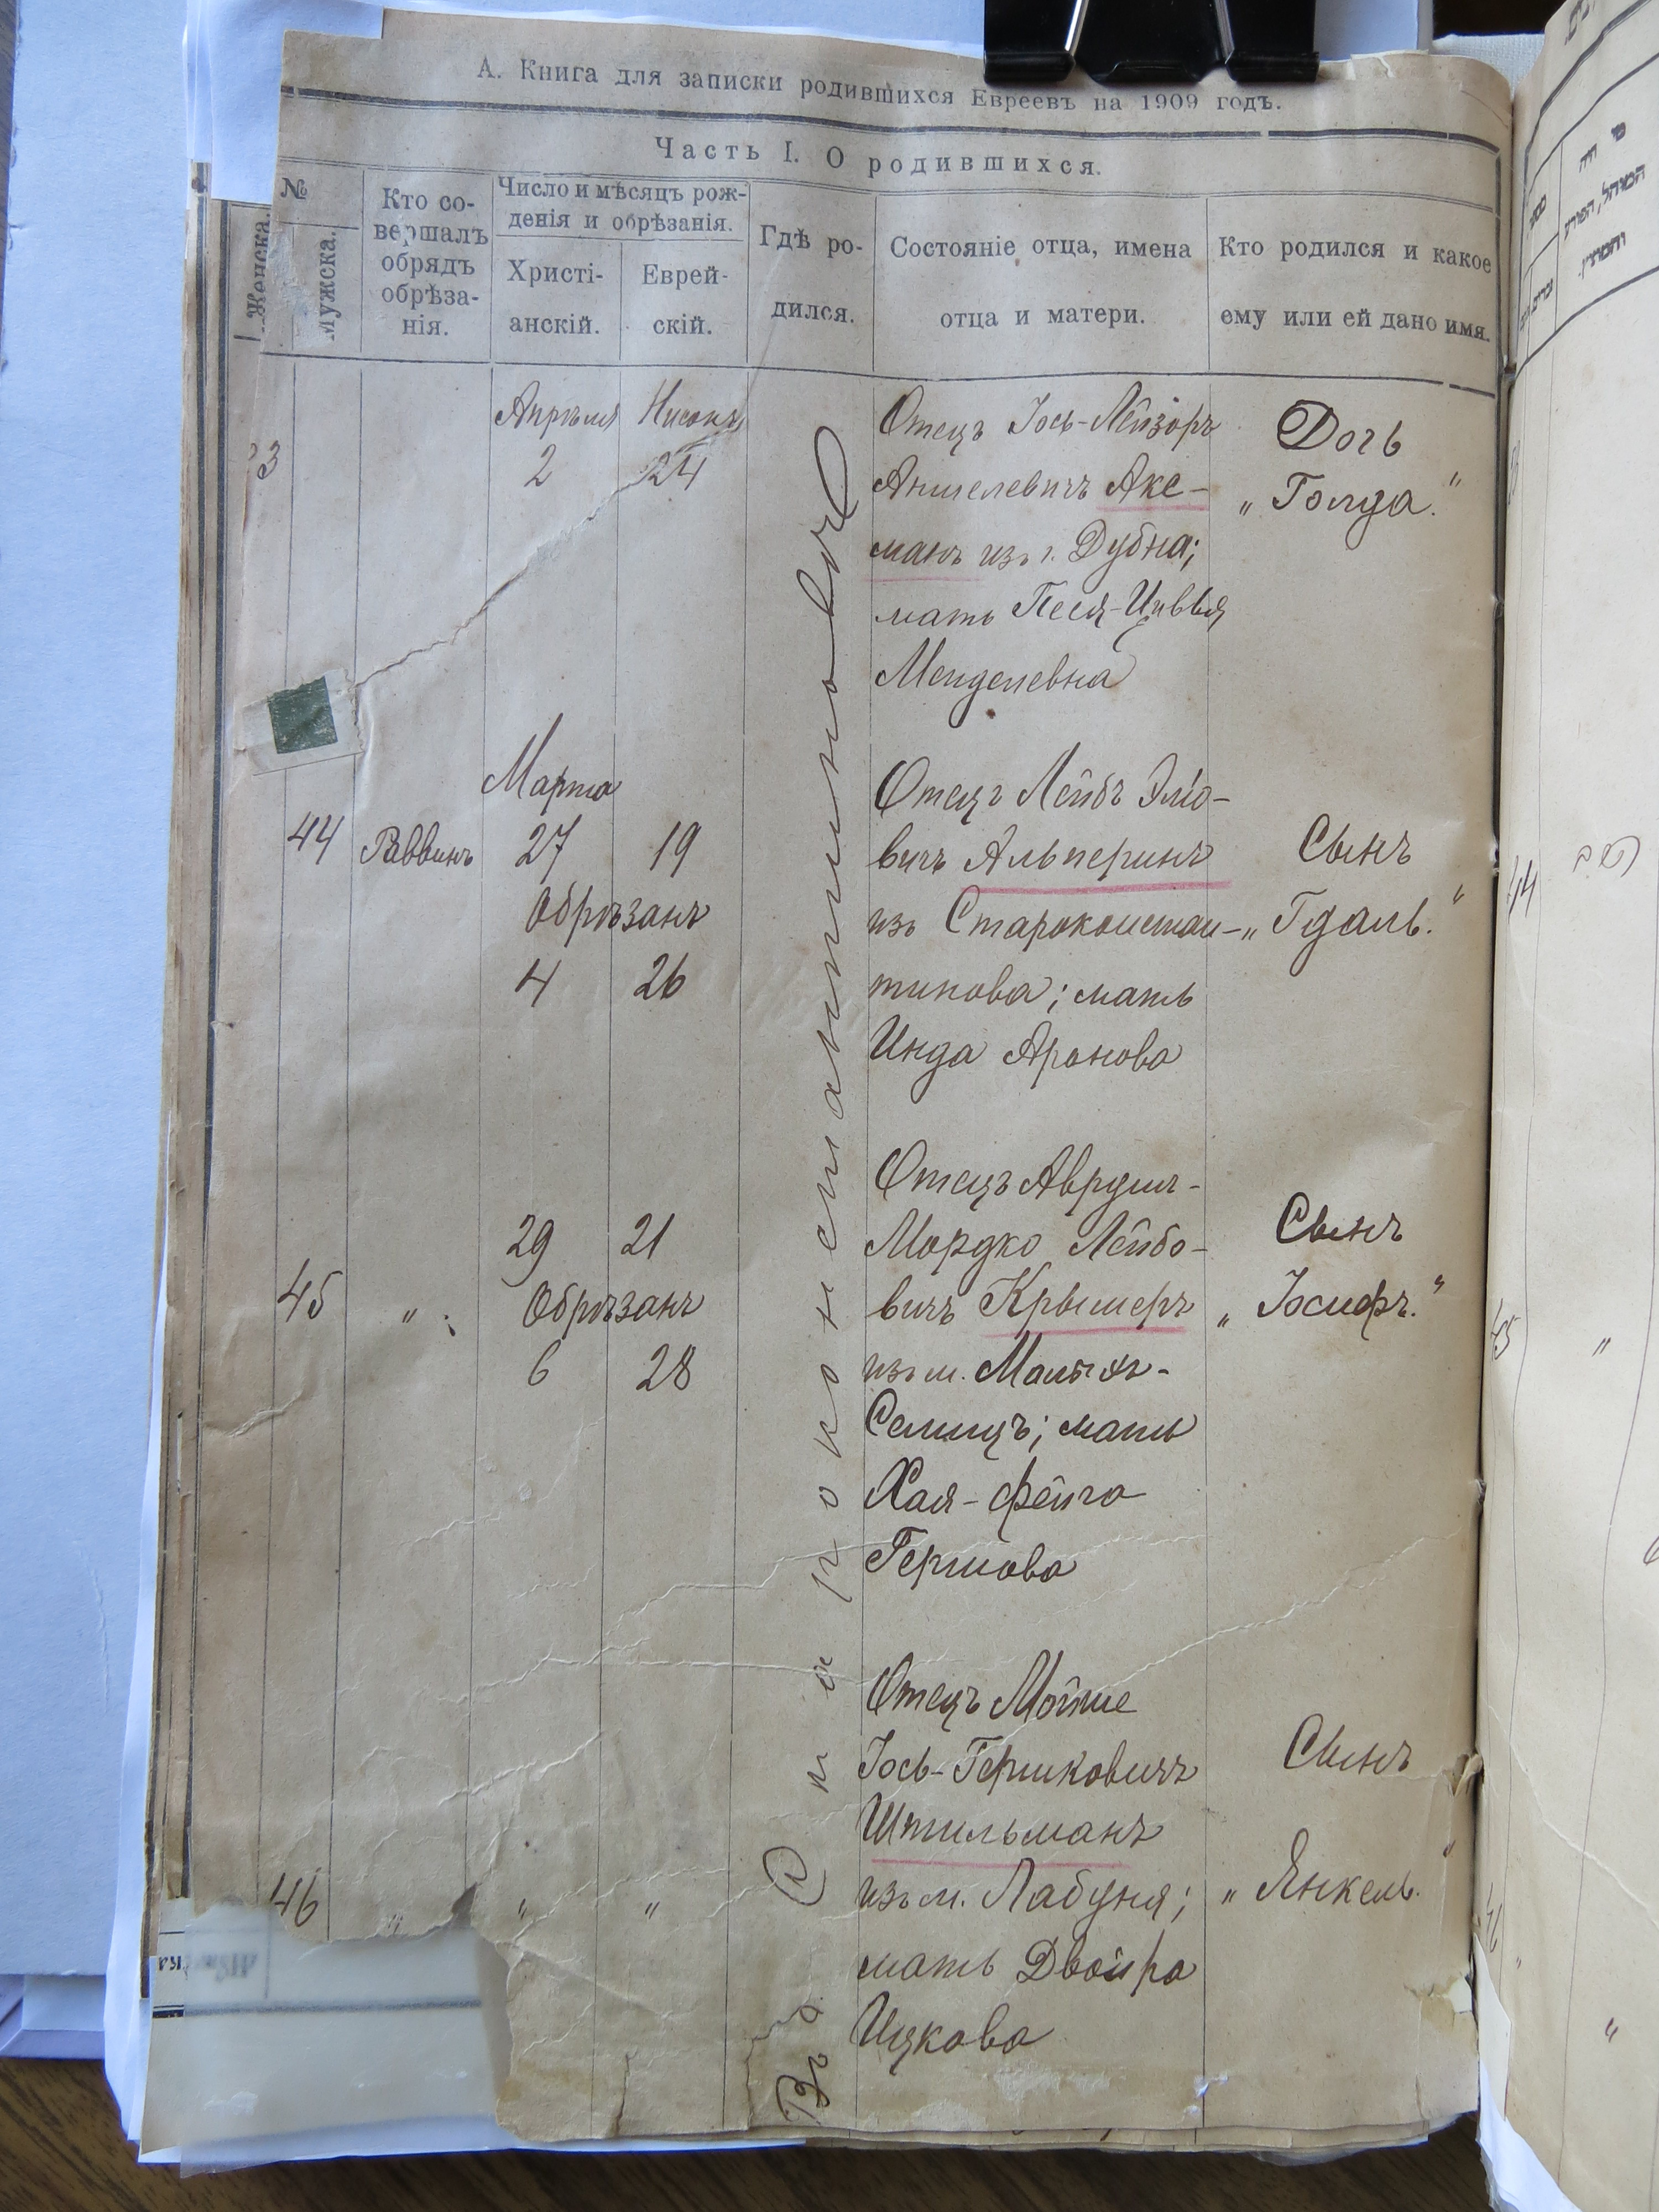 А. Книга для записки родившихся Евреевъ на 1909 годъ.
Часть I. О родившихся.
№
Женска.
Мужска.
Кто со-
вершалъ
обрядъ
обрѣза-
нія.
Число и мѣсяцъ рож-
денія и обрѣзанія.
Христі-
анскій.
Еврей-
скій.
Гдѣ ро-
дился.
Состояніе отца, имена
отца и матери.
Кто родился и какое
ему или ей дано имя.
Въ г. Староконстантиновѣ
3
Апрѣля Нисонъ
2 24
Отецъ Іось-Лейзоръ
Аншелевичъ Акс-
манъ изъ г. Дубна;
мать Песя-Цивья
Менделевна
Дочь
„Голда.“
Марта
44 Раввинъ 27 19
Обрѣзанъ
4 26
Отецъ Лейбъ Эліо-
вичъ Альперинъ
изъ Староконстан-
тинова; мать
Инда Аронова
Сынъ
„Гдаль.“
29 21
45 „ Обрѣзанъ
6 28
Отецъ
Мордко Лейбо-
вичъ Крымеръ
изъ м. Малыхъ-
Селищъ; мать
Хая-Фейга
Гершова
Сынъ
„Іосифъ.“
46 „ „ „
Отецъ Мойше
Іось-Гершковичъ
Штильманъ
изъ м. Лабуня;
мать Двойра
Ицкова
Сынъ
„Янкель.“
44
45
„
„